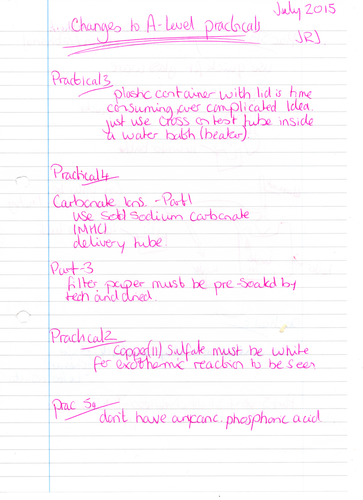 July 2015
Changes to A-Level practicals
JRJ
Practical 3
plastic container with lid is time
consuming, over complicated idea.
just use cross on test tube inside
a water bath (beaker).
Practical 4
Carbonate ions. - Part 1
use Sodium carbonate
delivery tube.
Part - 3
filter paper must be pre-soaked by
tech and dried.
Practical 2
copper(II) sulfate must be white
for exothermic reaction to be seen
Prac 5a
don't have any conc. phosphoric acid